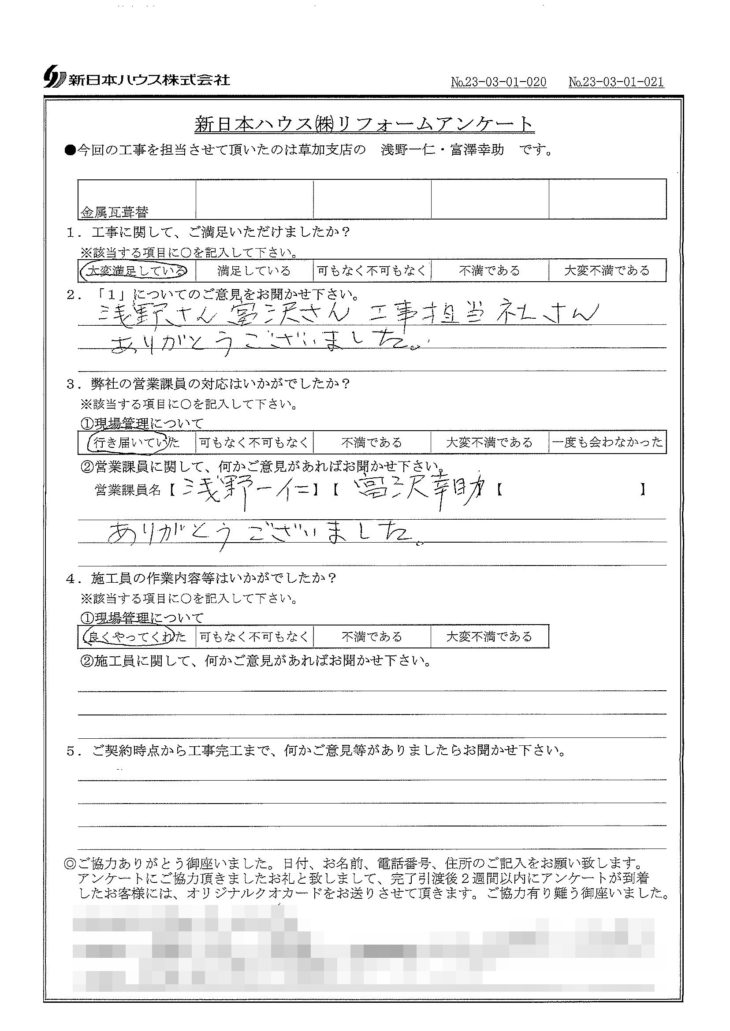 新日本ハウス株式会社 №23-03-01-020 №23-03-01-021
新日本ハウス㈱リフォームアンケート
●今回の工事を担当させて頂いたのは草加支店の 浅野一仁・富澤幸助 です。
金属瓦葺替
1．工事に関して、ご満足いただけましたか？
※該当する項目に○を記入して下さい。
大変満足している 満足している 可もなく不可もなく 不満である 大変不満である
2．「1」についてのご意見をお聞かせ下さい。
浅野さん富沢さん工事担当社さん
ありがとうございました。
3．弊社の営業課員の対応はいかがでしたか？
※該当する項目に○を記入して下さい。
①現場管理について
行き届いていた 可もなく不可もなく 不満である 大変不満である 一度も会わなかった
②営業課員に関して、何かご意見があればお聞かせ下さい。
営業課員名【浅野一仁】【富沢幸助】【 】
ありがとうございました。
4．施工員の作業内容等はいかがでしたか？
※該当する項目に○を記入して下さい。
①現場管理について
良くやってくれた 可もなく不可もなく 不満である 大変不満である
②施工員に関して、何かご意見があればお聞かせ下さい。
5．ご契約時点から工事完工まで、何かご意見等がありましたらお聞かせ下さい。
◎ご協力ありがとう御座いました。日付、お名前、電話番号、住所のご記入をお願い致します。
アンケートにご協力頂きましたお礼と致しまして、完了引渡後2週間以内にアンケートが到着
したお客様には、オリジナルクオカードをお送りさせて頂きます。ご協力有り難う御座いました。